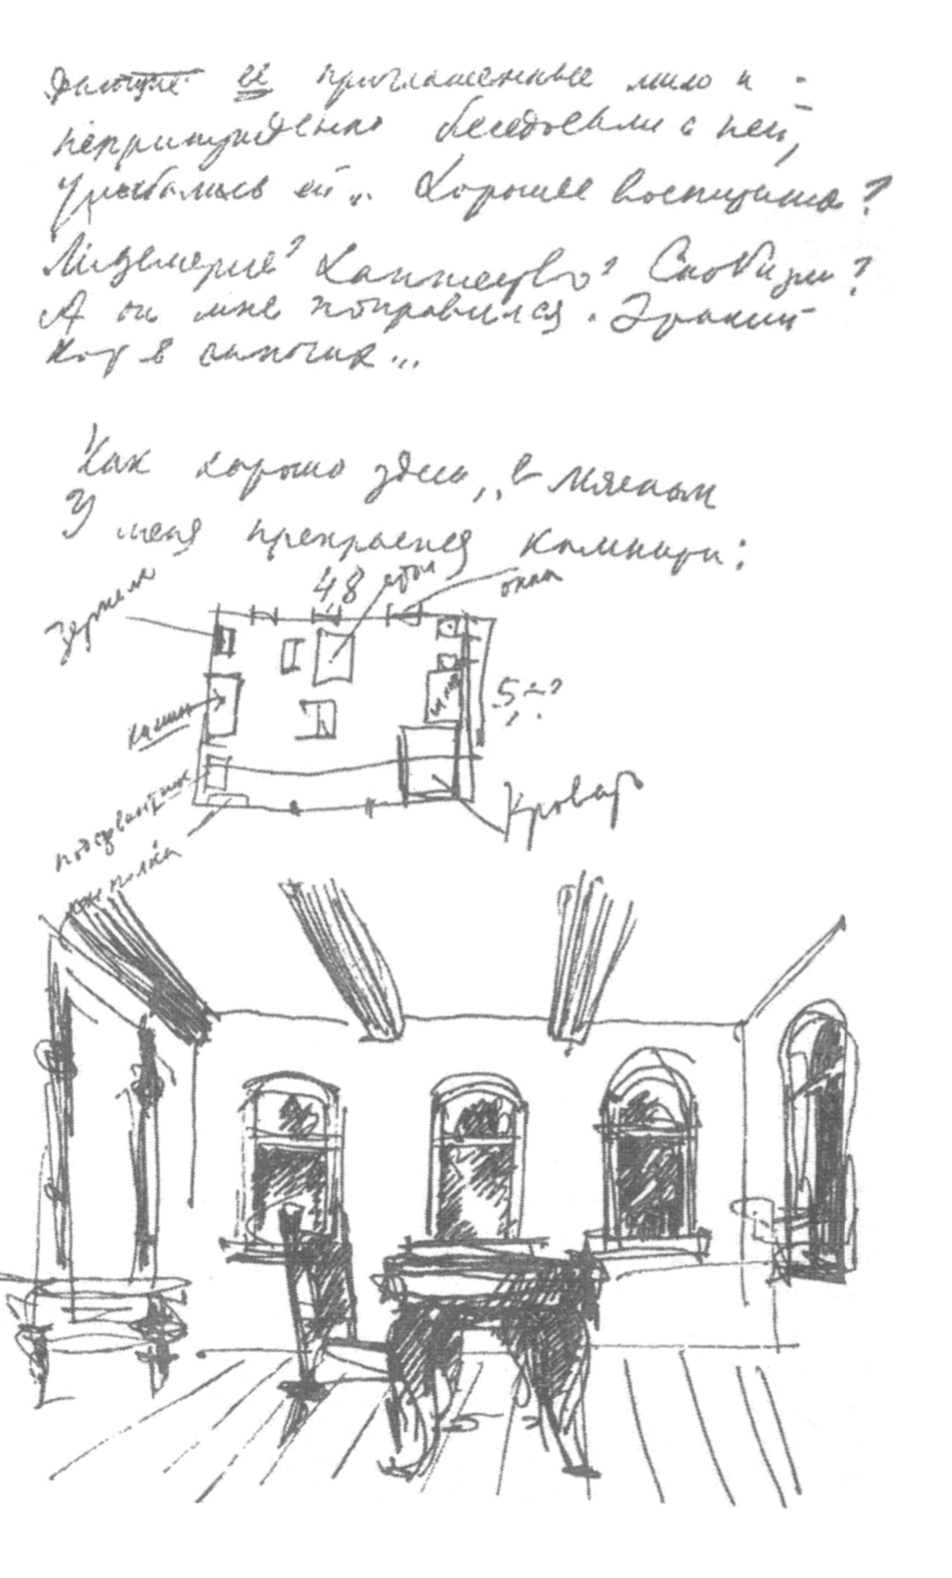 её приглашенные мило и
непринужденно беседовали с ней,
улыбались ей... Хорошее воспитание?
Лицемерие? Ханжество? Снобизм?
А он мне понравился. Эдакий
кот в сапогах...
Как хорошо здесь, в Мясном
У меня прекрасная комната:
Зеркало
4,8
стол
окна
камин
5
Кровать
подсвечник
полка